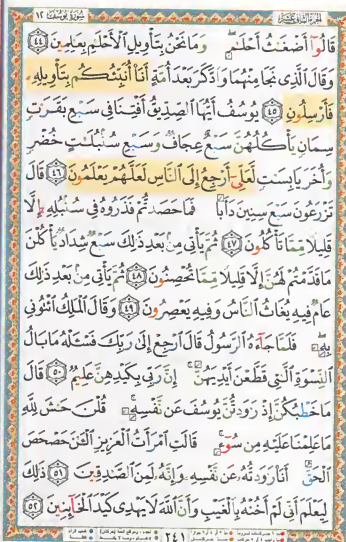 سورة يوسف ١٢
قالوا أضغاث أحلام وما نحن بتأويل الأحلام بعالمين ٤٤
وقال الذي نجا منهما وادكر بعد أمة أنا أنبئكم بتأويله
فأرسلون ٤٥ يوسف أيها الصديق أفتنا في سبع بقرات
سمان يأكلهن سبع عجاف وسبع سنبلات خضر
وأخر يابسات لعلي أرجع إلى الناس لعلهم يعلمون ٤٦ قال
تزرعون سبع سنين دأبا فما حصدتم فذروه في سنبله إلا
قليلا مما تأكلون ٤٧ ثم يأتي من بعد ذلك سبع شداد يأكلن
ما قدمتم لهن إلا قليلا مما تحصنون ٤٨ ثم يأتي من بعد ذلك
عام فيه يغاث الناس وفيه يعصرون ٤٩ وقال الملك ائتوني
به فلما جاءه الرسول قال ارجع إلى ربك فسئله ما بال
النسوة التي قطعن أيديهن إن ربي بكيدهن عليم ٥٠ قال
ما خطبكن إذ راودتن يوسف عن نفسه قلن حاش لله
ما علمنا عليه من سوء قالت امرأت العزيز الئن حصحص
الحق أنا راودته عن نفسه وإنه لمن الصادقين ٥١ ذلك
ليعلم أني لم أخنه بالغيب وأن الله لا يهدي كيد الخائنين ٥٢
٢٤١